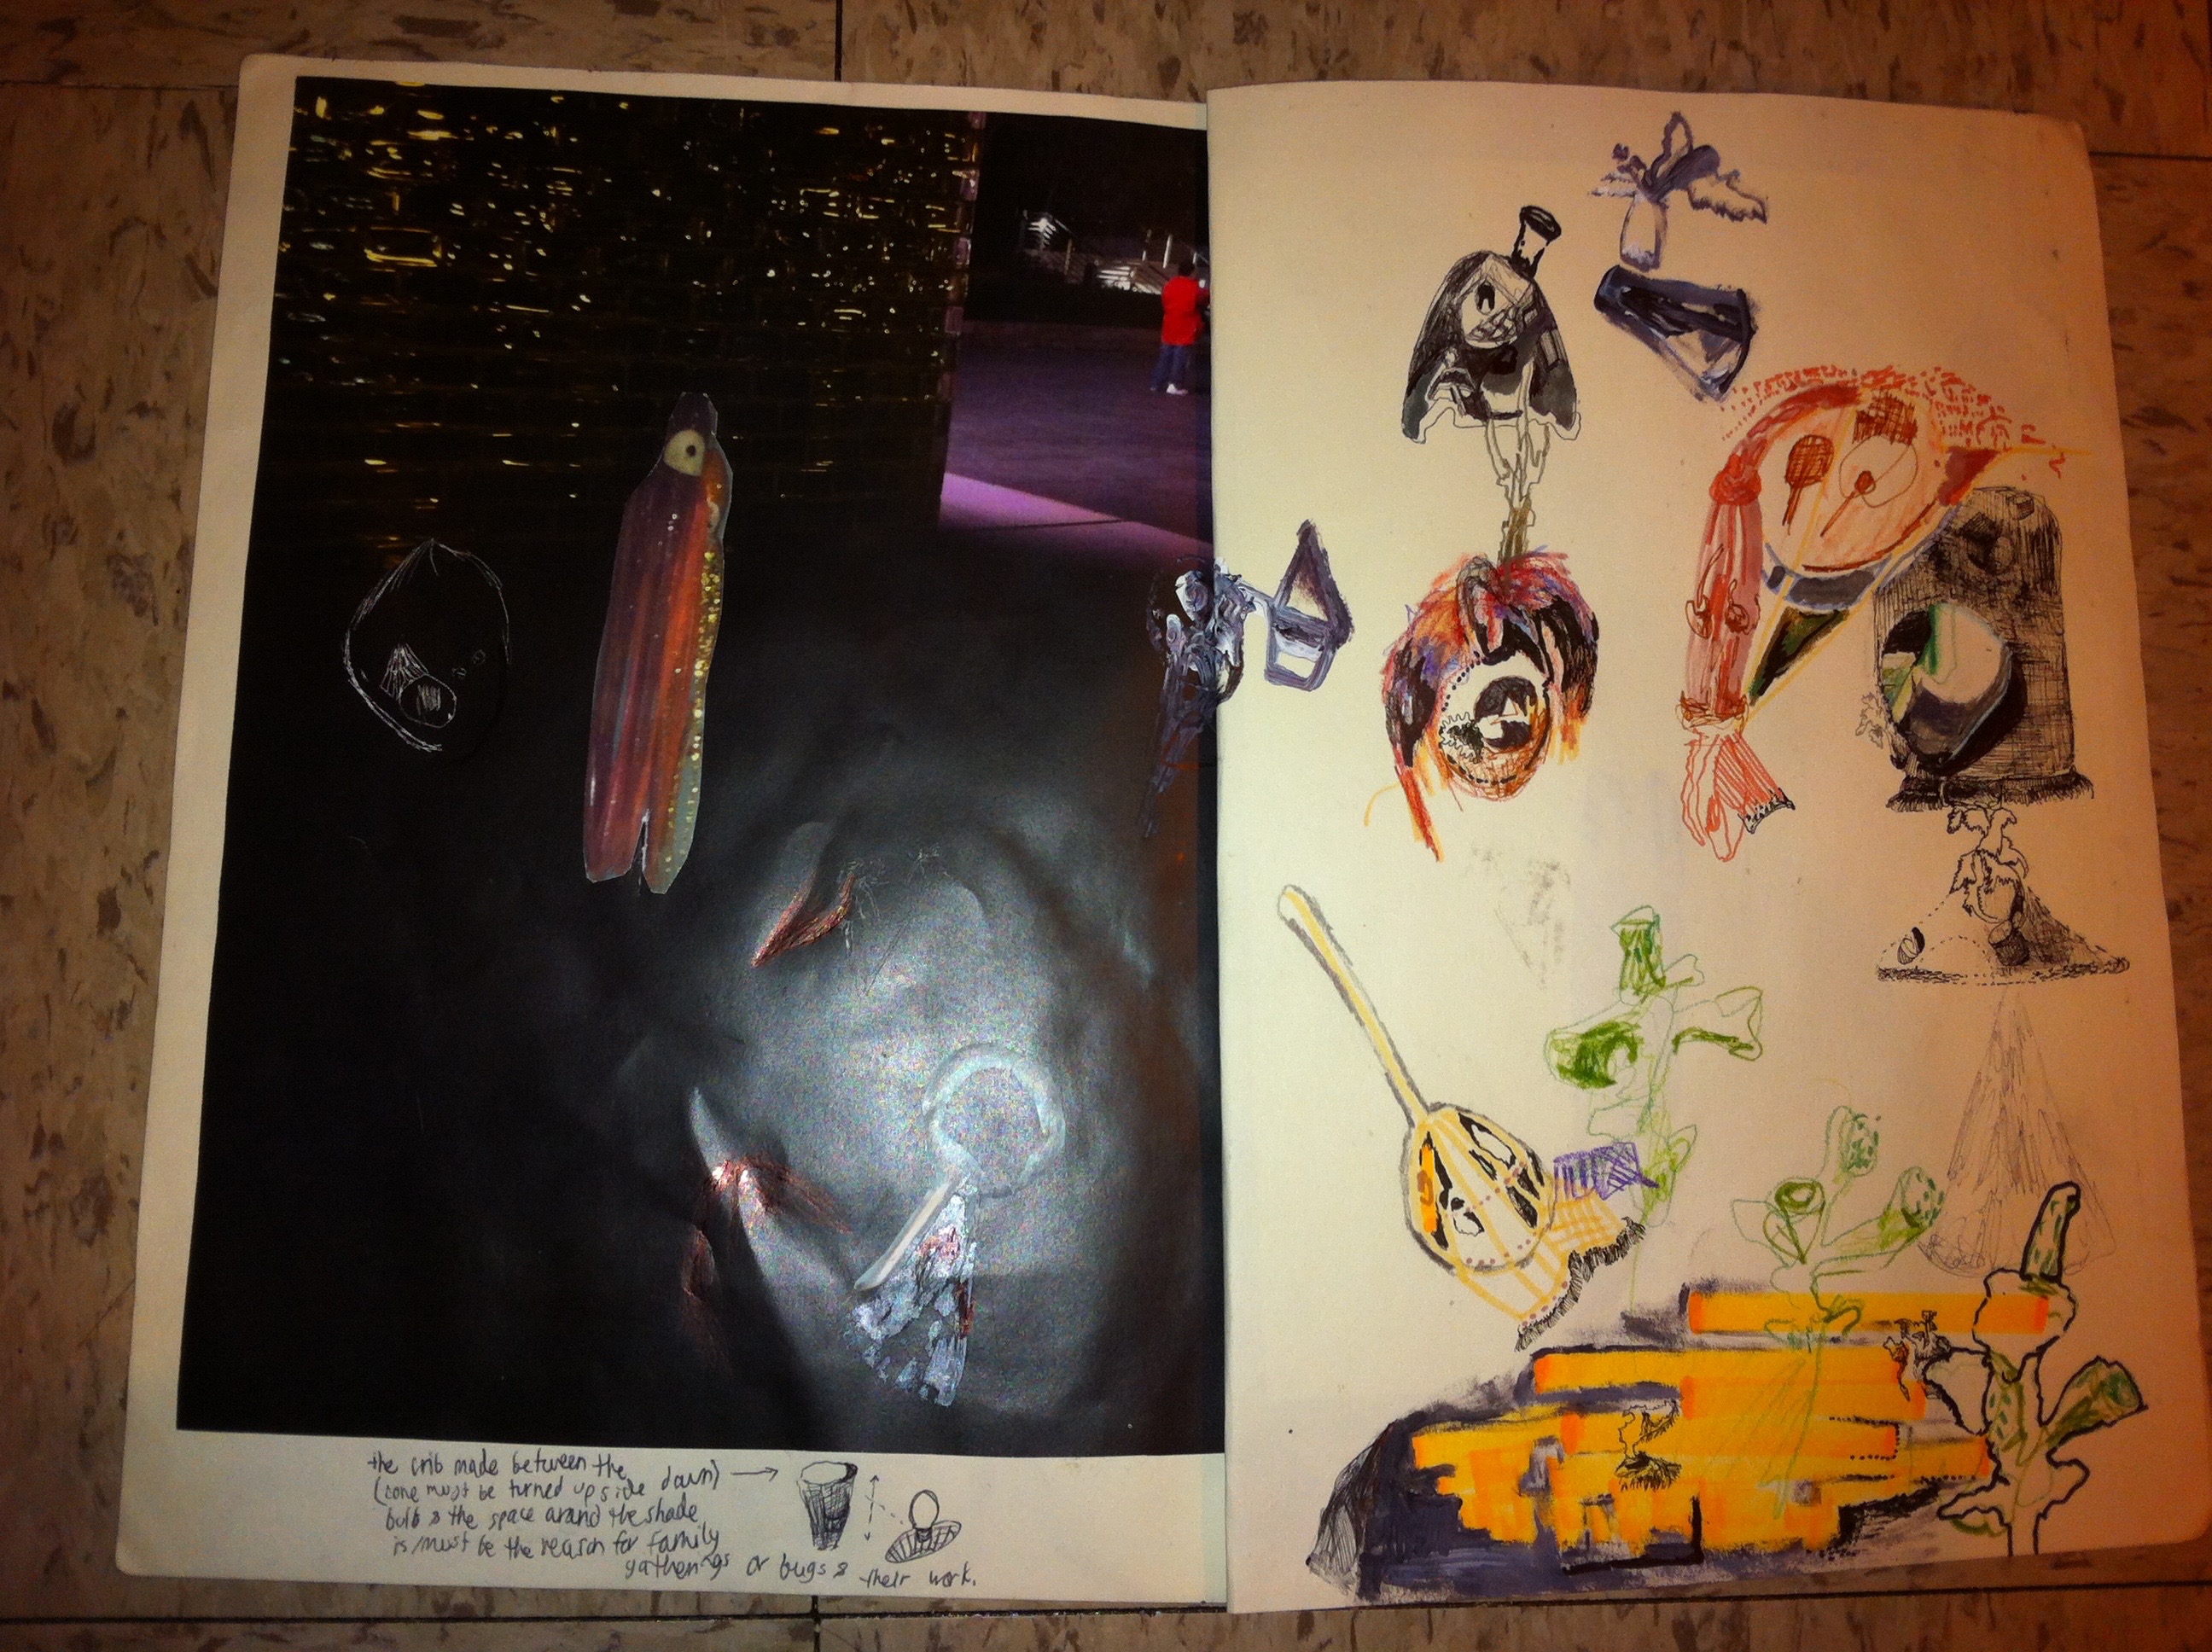 the crib made between the
(cone must be turned upside down)
bulb & the space around the shade
is/must be the reason for family
gatherings or bugs & their work.